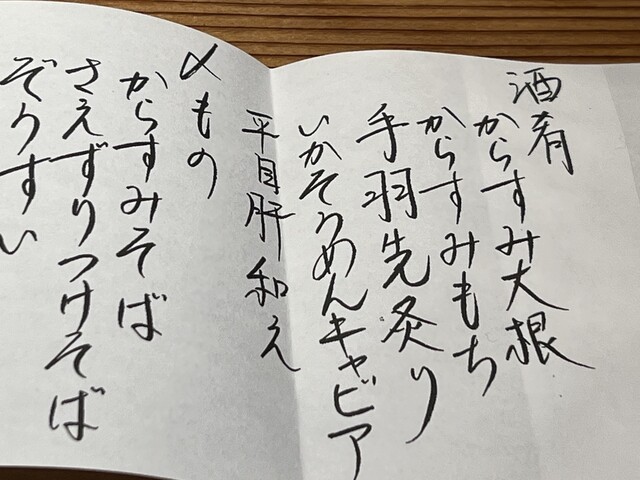 酒肴
からすみ大根
からすみもち
手羽先炙り
いかそうめんキャビア
平目肝和え
〆もの
からすみそば
さえずりつけそば
ぞうすい